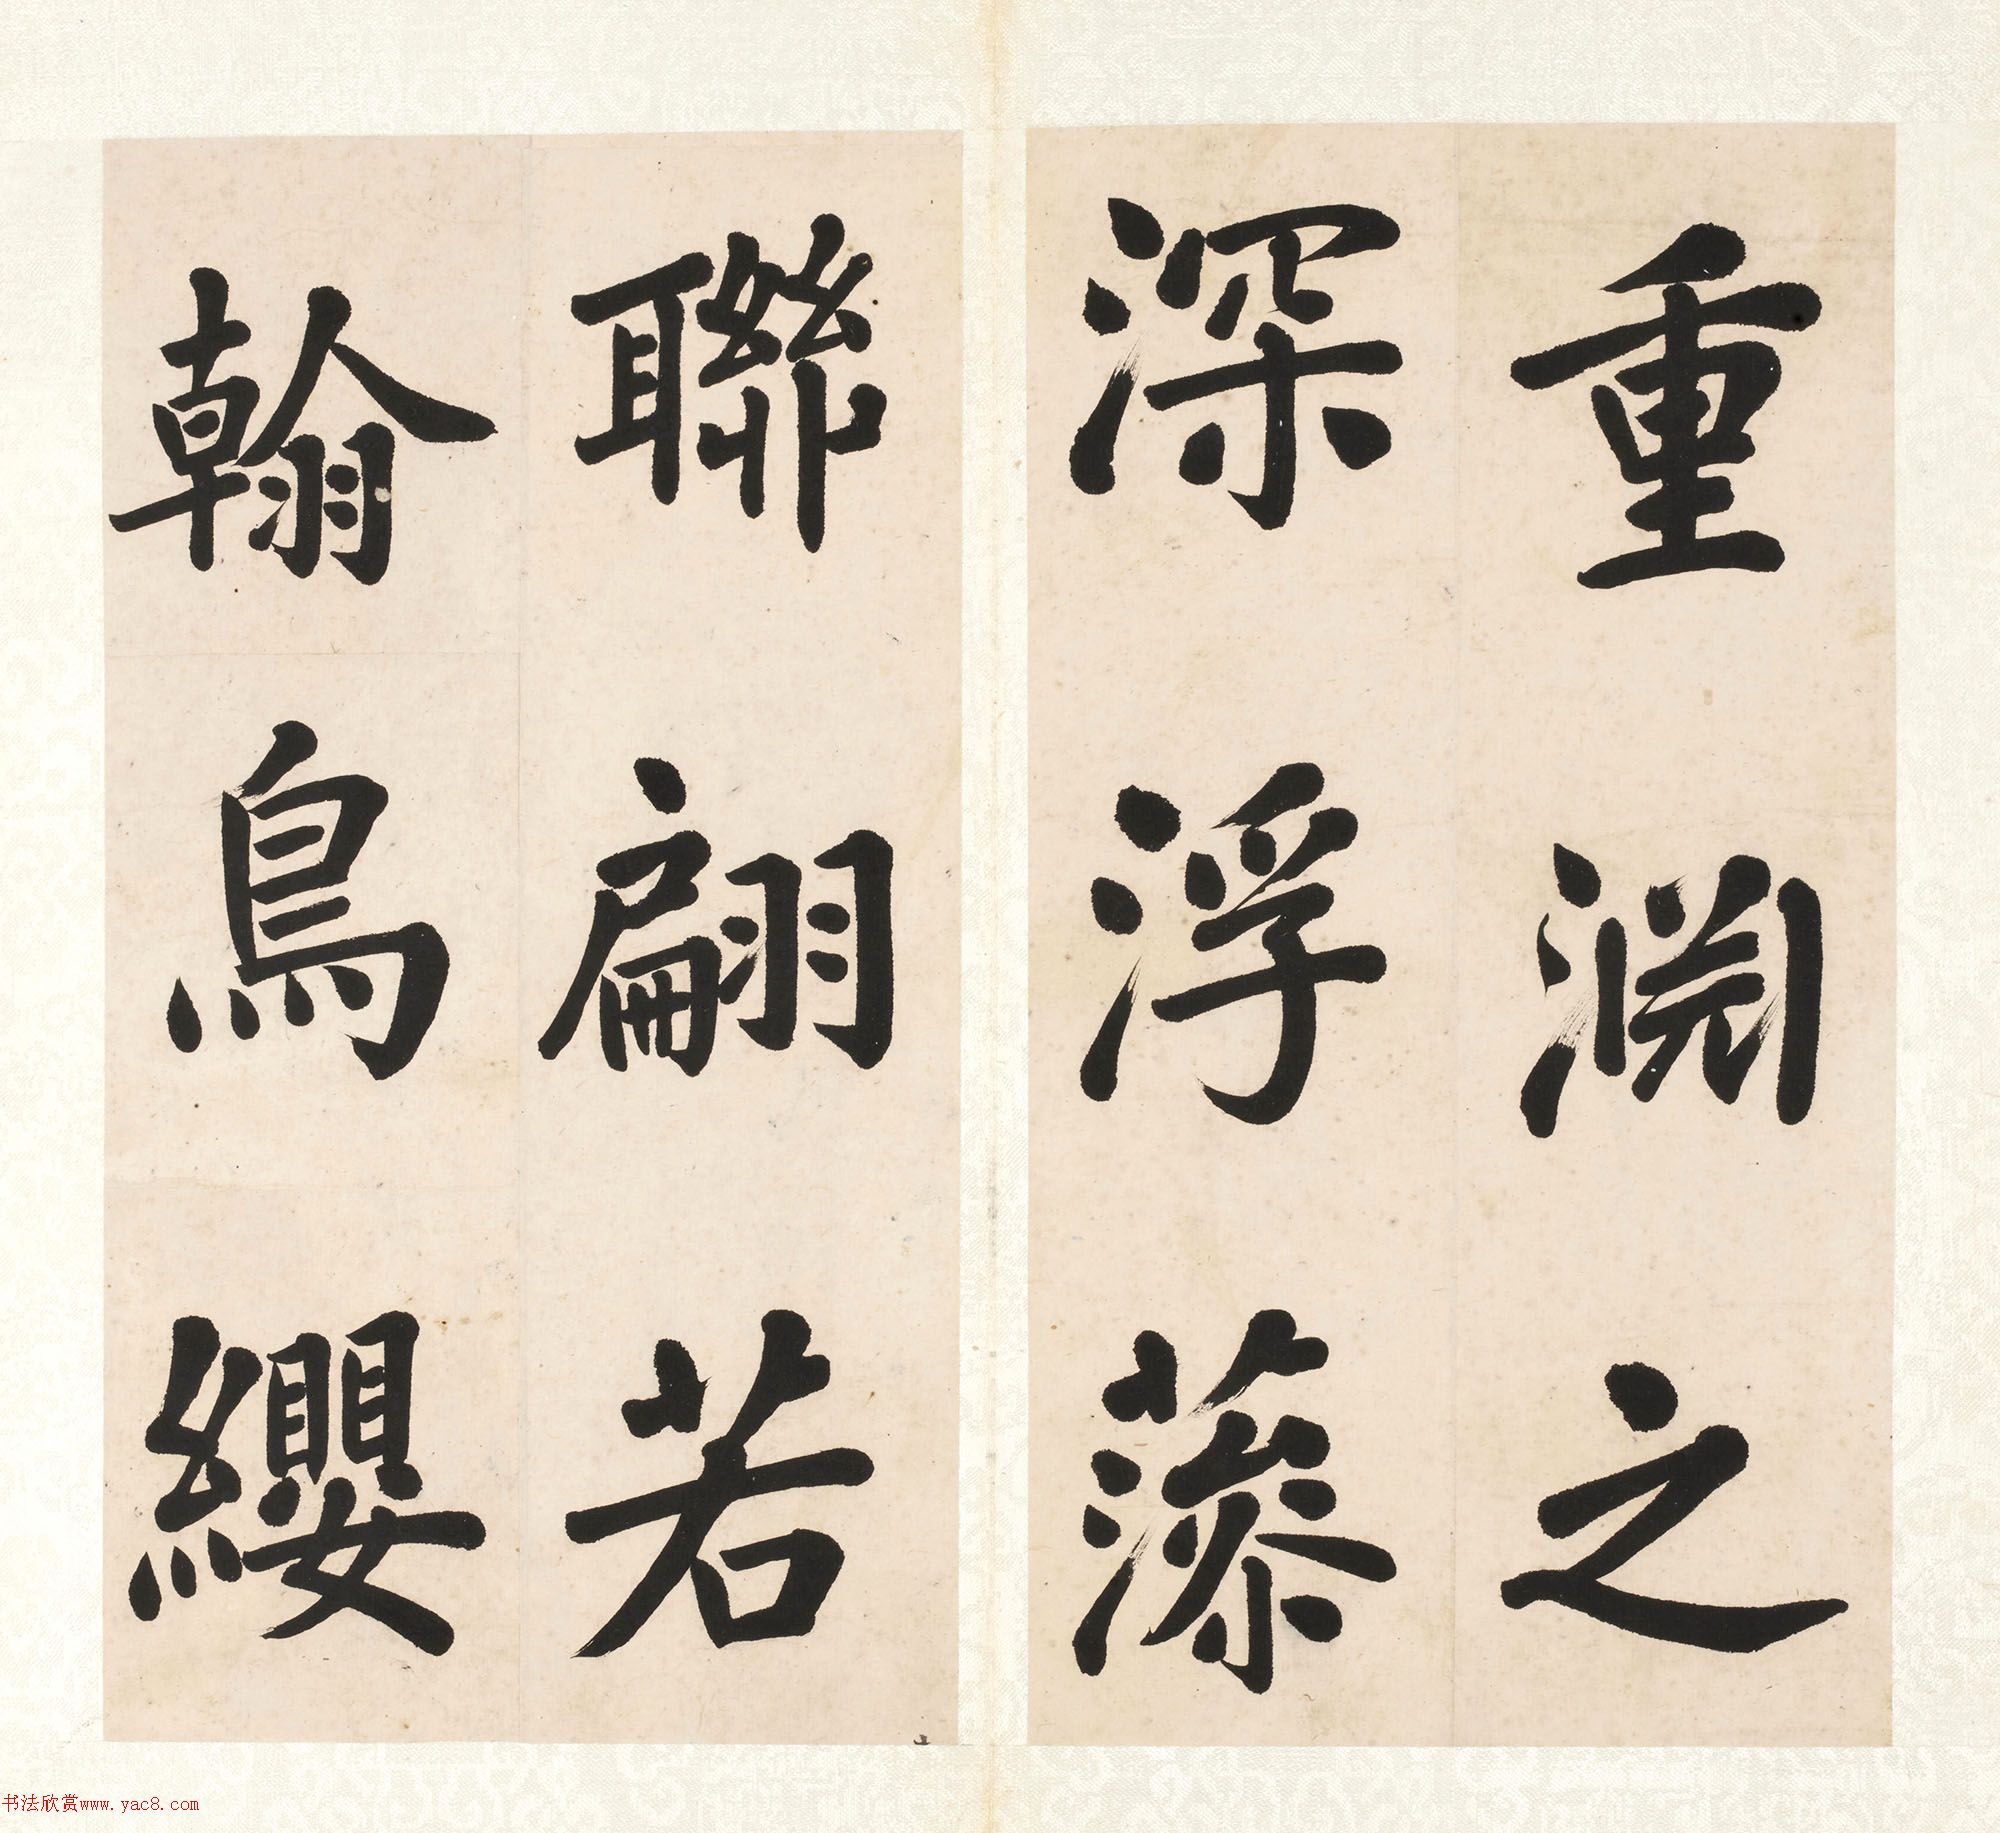 重淵之
深浮藻
聯翩若
翰鳥纓
书法欣赏www.yac8.com